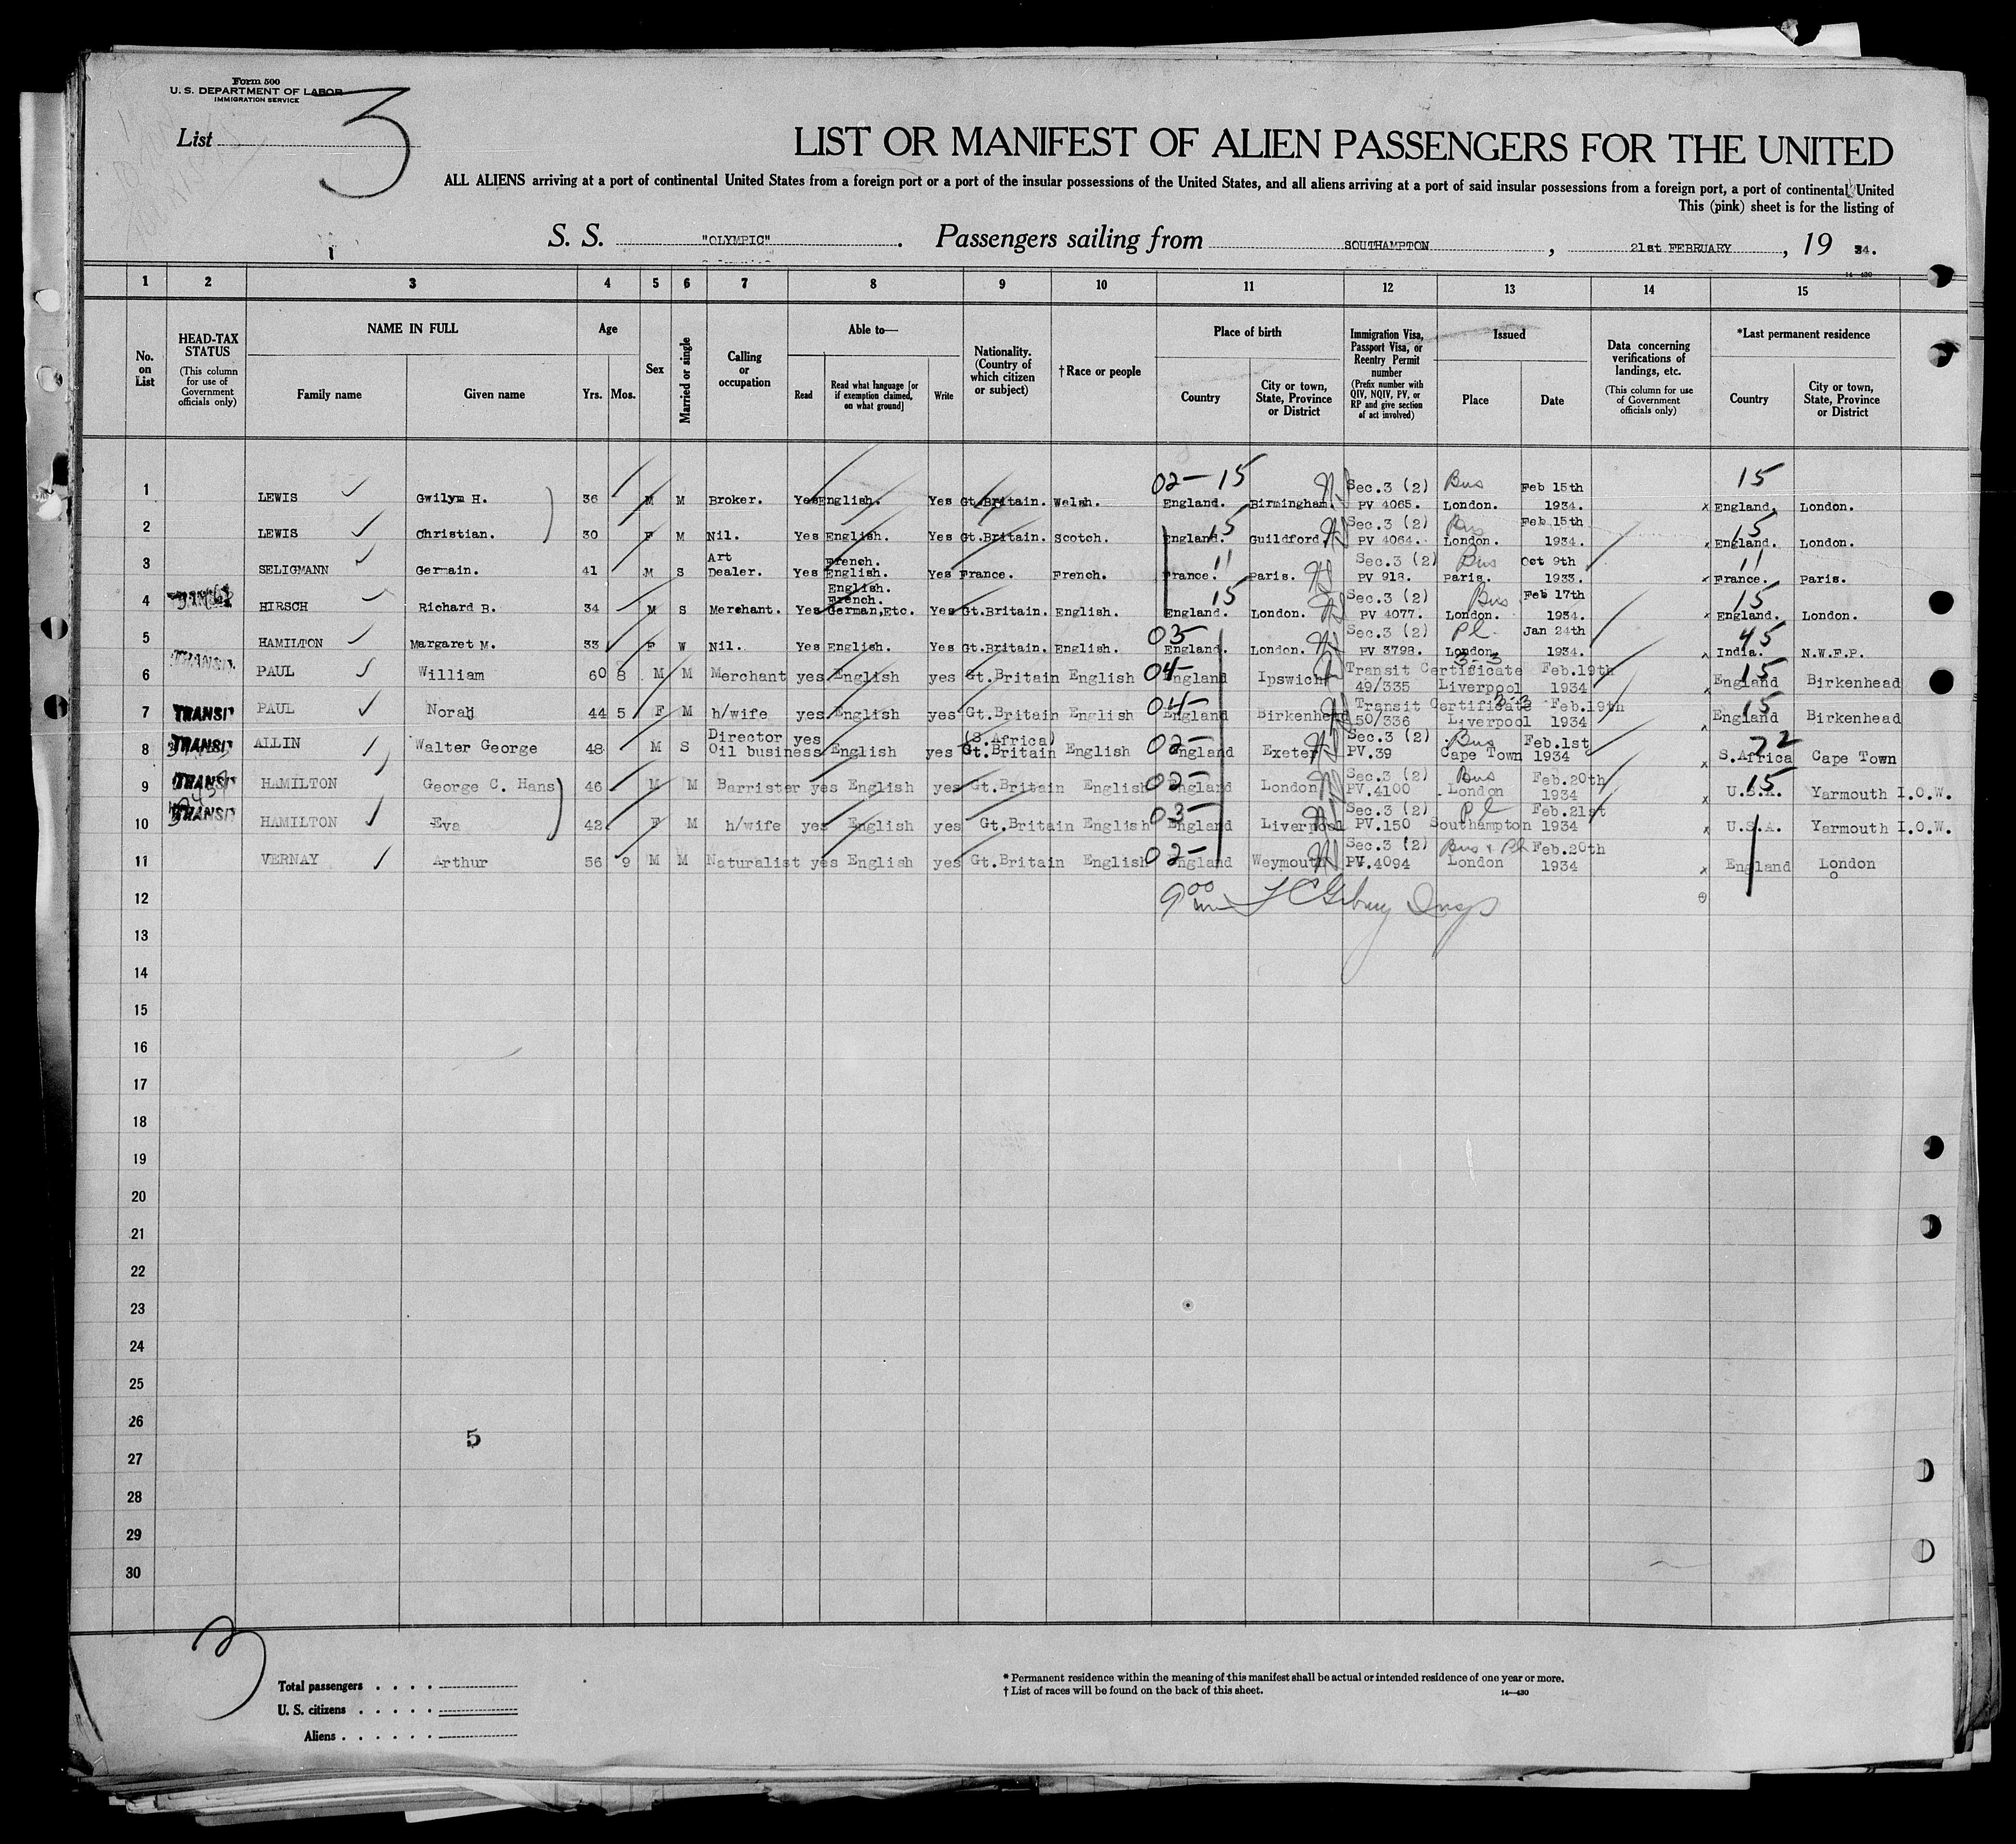 Form 500
U. S. DEPARTMENT OF LABOR
IMMIGRATION SERVICE
List 3
LIST OR MANIFEST OF ALIEN PASSENGERS FOR THE UNITED
ALL ALIENS arriving at a port of continental United States from a foreign port or a port of the insular possessions of the United States, and all aliens arriving at a port of said insular possessions from a foreign port, a port of continental United
This (pink) sheet is for the listing of
S. S. "OLYMPIC". Passengers sailing from SOUTHAMPTON, 21st FEBRUARY, 19 34.
14—430
1 2 3 4 5 6 7 8 9 10 11 12 13 14 15
No. on List
HEAD-TAX STATUS (This column for use of Government officials only)
NAME IN FULL
Family name Given name
Age
Yrs. Mos.
Sex
Married or single
Calling or occupation
Able to—
Read Read what language [or if exemption claimed, on what ground] Write
Nationality. (Country of which citizen or subject)
†Race or people
Place of birth
Country City or town, State, Province or District
Immigration Visa, Passport Visa, or Reentry Permit number (Prefix number with QIV, NQIV, PV, or RP and give section of act involved)
Issued
Place Date
Data concerning verifications of landings, etc. (This column for use of Government officials only)
*Last permanent residence
Country City or town, State, Province or District
1 LEWIS Gwilym H. 36 M M Broker. Yes English. Yes Gt.Britain. Welsh. 02-15 England. Birmingham. Sec.3 (2) PV 4065. Bus London. Feb 15th 1934. x 15 England. London.
2 LEWIS Christian. 30 F M Nil. Yes English. Yes Gt.Britain. Scotch. 15 England. Guildford. Sec.3 (2) PV 4064. Bus London. Feb 15th 1934. x 15 England. London.
3 SELIGMANN Germain. 41 M S Art Dealer. Yes French. English. Yes France. French. 11 France. Paris. Sec.3 (2) PV 918. Bus Paris. Oct 9th 1933. x 11 France. Paris.
4 HIRSCH Richard B. 34 M S Merchant. Yes English. French. German,Etc. Yes Gt.Britain. English. 15 England. London. Sec.3 (2) PV 4077. Bus London. Feb 17th 1934. x 15 England. London.
5 HAMILTON Margaret M. 33 F W Nil. Yes English. Yes Gt.Britain. English. 03- England. London. Sec.3 (2) PV 3798. Pl. London. Jan 24th 1934. 45 India. N.W.F.P.
6 TRANSIT PAUL William 60 8 M M Merchant yes English yes Gt.Britain English 04- England Ipswich Transit Certificate 49/335 3-3 Liverpool Feb.19th 1934 x 15 England Birkenhead
7 TRANSIT PAUL Norah 44 5 F M h/wife yes English yes Gt.Britain English 04- England Birkenhead Transit Certificate 50/336 3-3 Liverpool Feb.19th 1934 15 England Birkenhead
8 TRANSIT ALLIN Walter George 48 M S Director Oil business yes English yes (S.Africa) Gt.Britain English 02- England Exeter Sec.3 (2) PV.39 Bus Cape Town Feb.1st 1934 x 72 S.Africa Cape Town
9 TRANSIT HAMILTON George C. Hans 46 M M Barrister yes English yes Gt.Britain English 02- England London Sec.3 (2) PV.4100 Bus London Feb.20th 1934 x 15 U.S.A. Yarmouth I.O.W.
10 TRANSIT HAMILTON Eva 42 F M h/wife yes English yes Gt.Britain English 03- England Liverpool Sec.3 (2) PV.150 Pl Southampton Feb.21st 1934 x U.S.A. Yarmouth I.O.W.
11 VERNAY Arthur 56 9 M M Naturalist yes English yes Gt.Britain English 02- England Weymouth Sec.3 (2) PV.4094 Bus & Pl London Feb.20th 1934 x England London
12
13
14
15
16
17
18
19
20
21
22
23
24
25
26
5
27
28
29
30
3
Total passengers
U. S. citizens
Aliens
* Permanent residence within the meaning of this manifest shall be actual or intended residence of one year or more.
† List of races will be found on the back of this sheet.
14—430